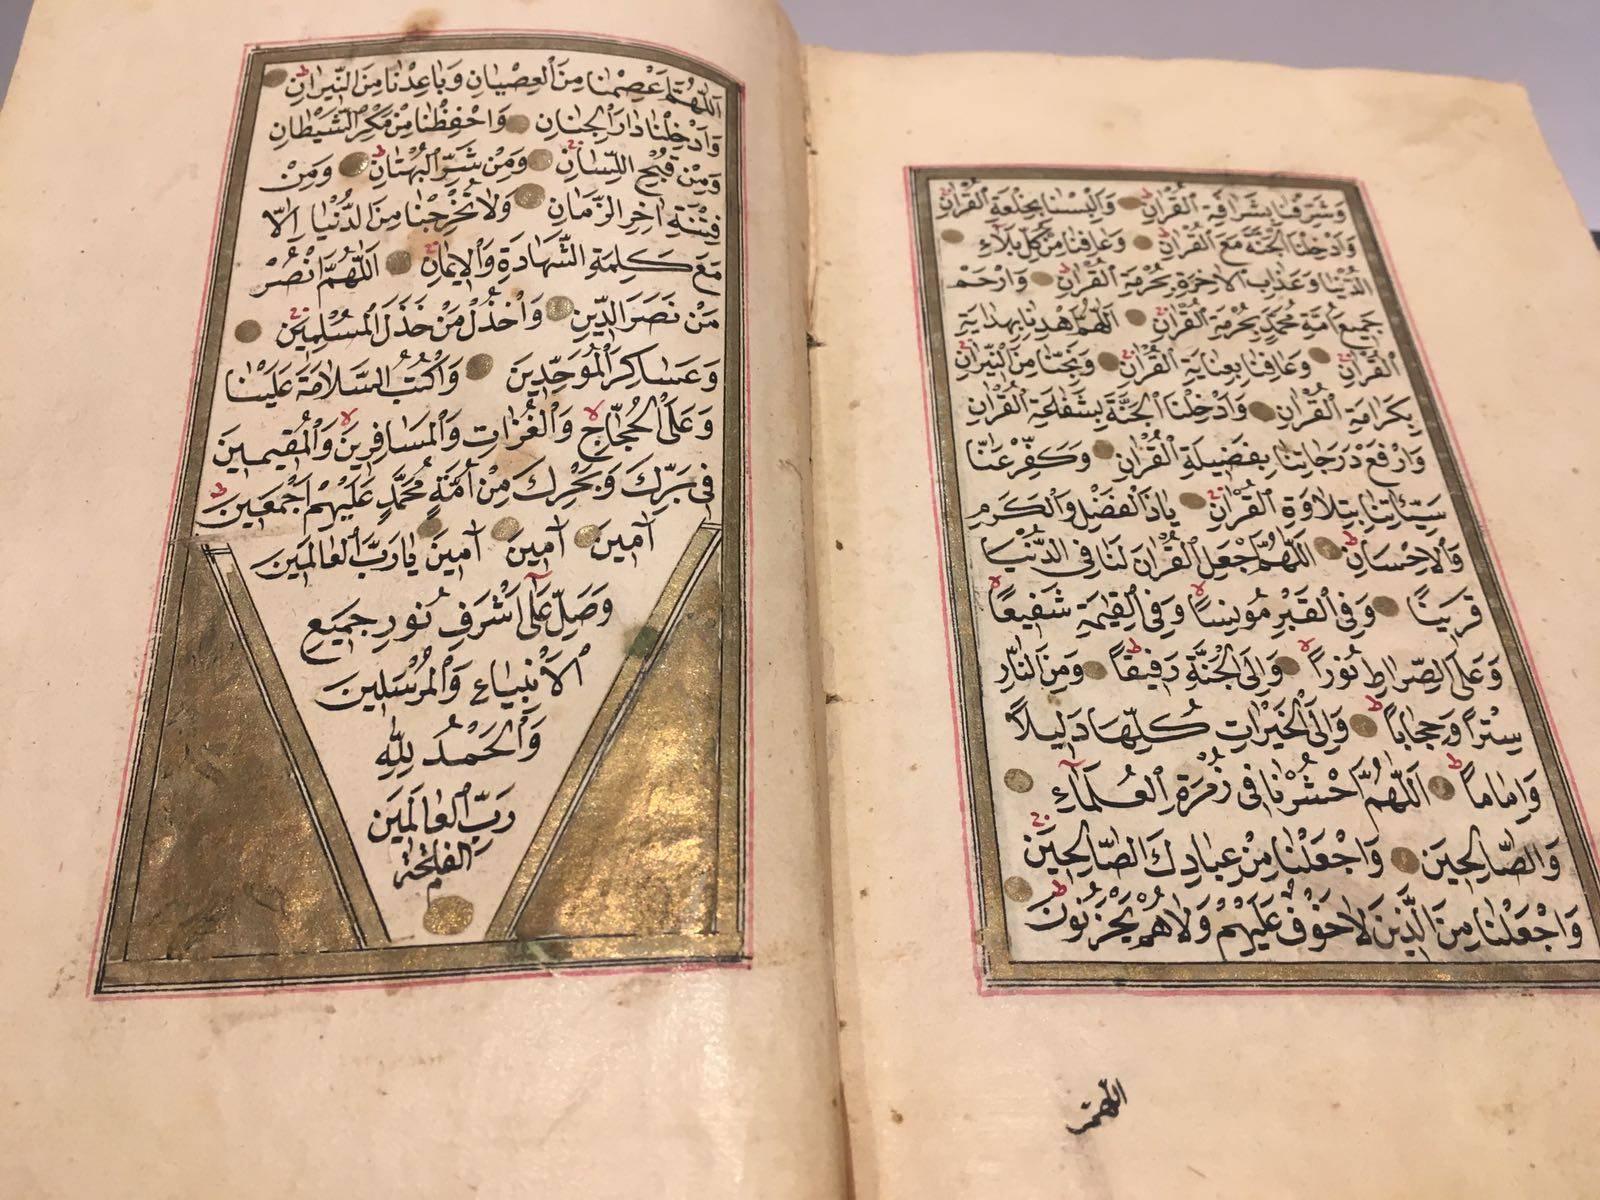 وَشَرِّفْنَا بِشَرَافَةِ الْقُرْاٰنِ وَاَلْبِسْنَا بِخِلْعَةِ الْقُرْاٰنِ
وَاَدْخِلْنَا الْجَنَّةَ مَعَ الْقُرْاٰنِ وَعَافِنَا مِنْ كُلِّ بَلَاۤءِ
الدُّنْيَا وَعَذَابِ الْاٰخِرَةِ بِحُرْمَةِ الْقُرْاٰنِ وَارْحَمْ
جَمِيعَ اُمَّةِ مُحَمَّدٍ بِحُرْمَةِ الْقُرْاٰنِ اَللّٰهُمَّ اهْدِنَا بِهِدَايَةِ
الْقُرْاٰنِ وَعَافِنَا بِعِنَايَةِ الْقُرْاٰنِ وَنَجِّنَا مِنَ النّ۪يرَانِ
بِكَرَامَةِ الْقُرْاٰنِ وَاَدْخِلْنَا الْجَنَّةَ بِشَفَاعَةِ الْقُرْاٰنِ
وَارْفَعْ دَرَجَاتِنَا بِفَضِيلَةِ الْقُرْاٰنِ وَكَفِّرْ عَنَّا
سَيِّئَاتِنَا بِتِلَاوَةِ الْقُرْاٰنِ يَا ذَا الْفَضْلِ وَالْكَرَمِ
وَالْاِحْسَانِ اَللّٰهُمَّ اجْعَلِ الْقُرْاٰنَ لَنَا فِى الدُّنْيَا
قَرِينًا وَفِى الْقَبْرِ مُونِسًا وَفِى الْقِيٰمَةِ شَفِيعًا
وَعَلَى الصِّرَاطِ نُورًا وَاِلَى الْجَنَّةِ رَفِيقًا وَمِنَ النَّارِ
سِتْرًا وَحِجَابًا وَاِلَى الْخَيْرَاتِ كُلِّهَا دَلِيلًا
وَاِمَامًا اَللّٰهُمَّ احْشُرْنَا فِى زُمْرَةِ الْعُلَمَاۤءِ
وَالصَّالِحِينَ وَاجْعَلْنَا مِنْ عِبَادِكَ الصَّالِحِينَ
وَاجْعَلْنَا مِنَ الَّذِينَ لَا خَوْفٌ عَلَيْهِمْ وَلَا هُمْ يَحْزَنُونَ
اللّٰهمّ
اَللّٰهُمَّ اعْصِمْنَا مِنَ الْعِصْيَانِ وَبَاعِدْنَا مِنَ النِّيرَانِ
وَاَدْخِلْنَا دَارَ الْجِنَانِ وَاحْفِظْنَا مِنْ مَكْرِ الشَّيْطَانِ
وَمِنْ قُبْحِ اللِّسَانِ وَمِنْ شَرِّ الْبُهْتَانِ وَمِنْ
فِتْنَةِ اٰخِرِ الزَّمَانِ وَلَا تُخْرِجْنَا مِنَ الدُّنْيَا اِلَّا
مَعَ كَلِمَةِ الشَّهَادَةِ وَالْاِيمَانِ اَللّٰهُمَّ انْصُرْ
مَنْ نَصَرَ الدِّينَ وَاخْذُلْ مَنْ خَذَلَ الْمُسْلِمِينَ
وَعَسَاكِرَ الْمُوَحِّدِينَ وَاكْتُبِ السَّلَامَةَ عَلَيْنَا
وَعَلَى الْحُجَّاجِ وَالْغُزَاتِ وَالْمُسَافِرِينَ وَالْمُقِيمِينَ
فِى بَرِّكَ وَبَحْرِكَ مِنْ اُمَّةِ مُحَمَّدٍ عَلَيْهِمْ اَجْمَعِينَ
اٰمِينَ اٰمِينَ اٰمِينَ يَا رَبَّ الْعَالَمِينَ
وَصَلِّ عَلَى اَشْرَفِ نُورِ جَمِيعِ
الْاَنْبِيَاءِ وَالْمُرْسَلِينَ
وَالْحَمْدُ لِلّٰهِ
رَبِّ الْعَالَمِينَ
الْفَاتِحَة